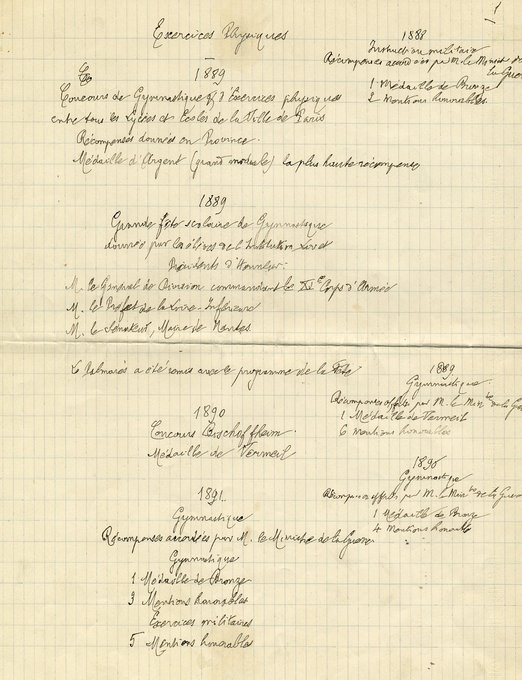 1
Exercices Physiques
1888
Instruction militaire
Récompenses accordées par M. le Ministre de
la Guerre
1 Médaille de Bronze
2 Mentions honorables
1889
Concours de Gymnastique & d'Exercices physiques
entre tous les Lycées et Ecoles de la Ville de Paris
Récompenses données en Province
Médaille d'Argent (grand module) la plus haute récompense
1889
Grande fête scolaire de Gymnastique
donnée par les élèves de l'Institution Livet
Présidents d'Honneur
M. le Général de Division commandant le XIe Corps d'Armée
M. le Préfet de la Loire-Inférieure
M. le Sénateur, Maire de Nantes
Le Palmarès a été remis avec le programme de la Fête
1889
Gymnastique
Récompenses offertes par M. le Mintre de la Guerre
1 Médaille de Vermeil
6 Mentions honorables
1890
Concours Bischoffheim
Médaille de Vermeil
1890
Gymnastique
Récompenses offertes par M. le Mintre de la Guerre
1 Médaille de Bronze
4 Mentions honorables
1891
Gymnastique
Récompenses accordées par M. le Ministre de la Guerre
Gymnastique
1 Médaille de Bronze
3 Mentions honorables
Exercices militaires
5 Mentions honorables